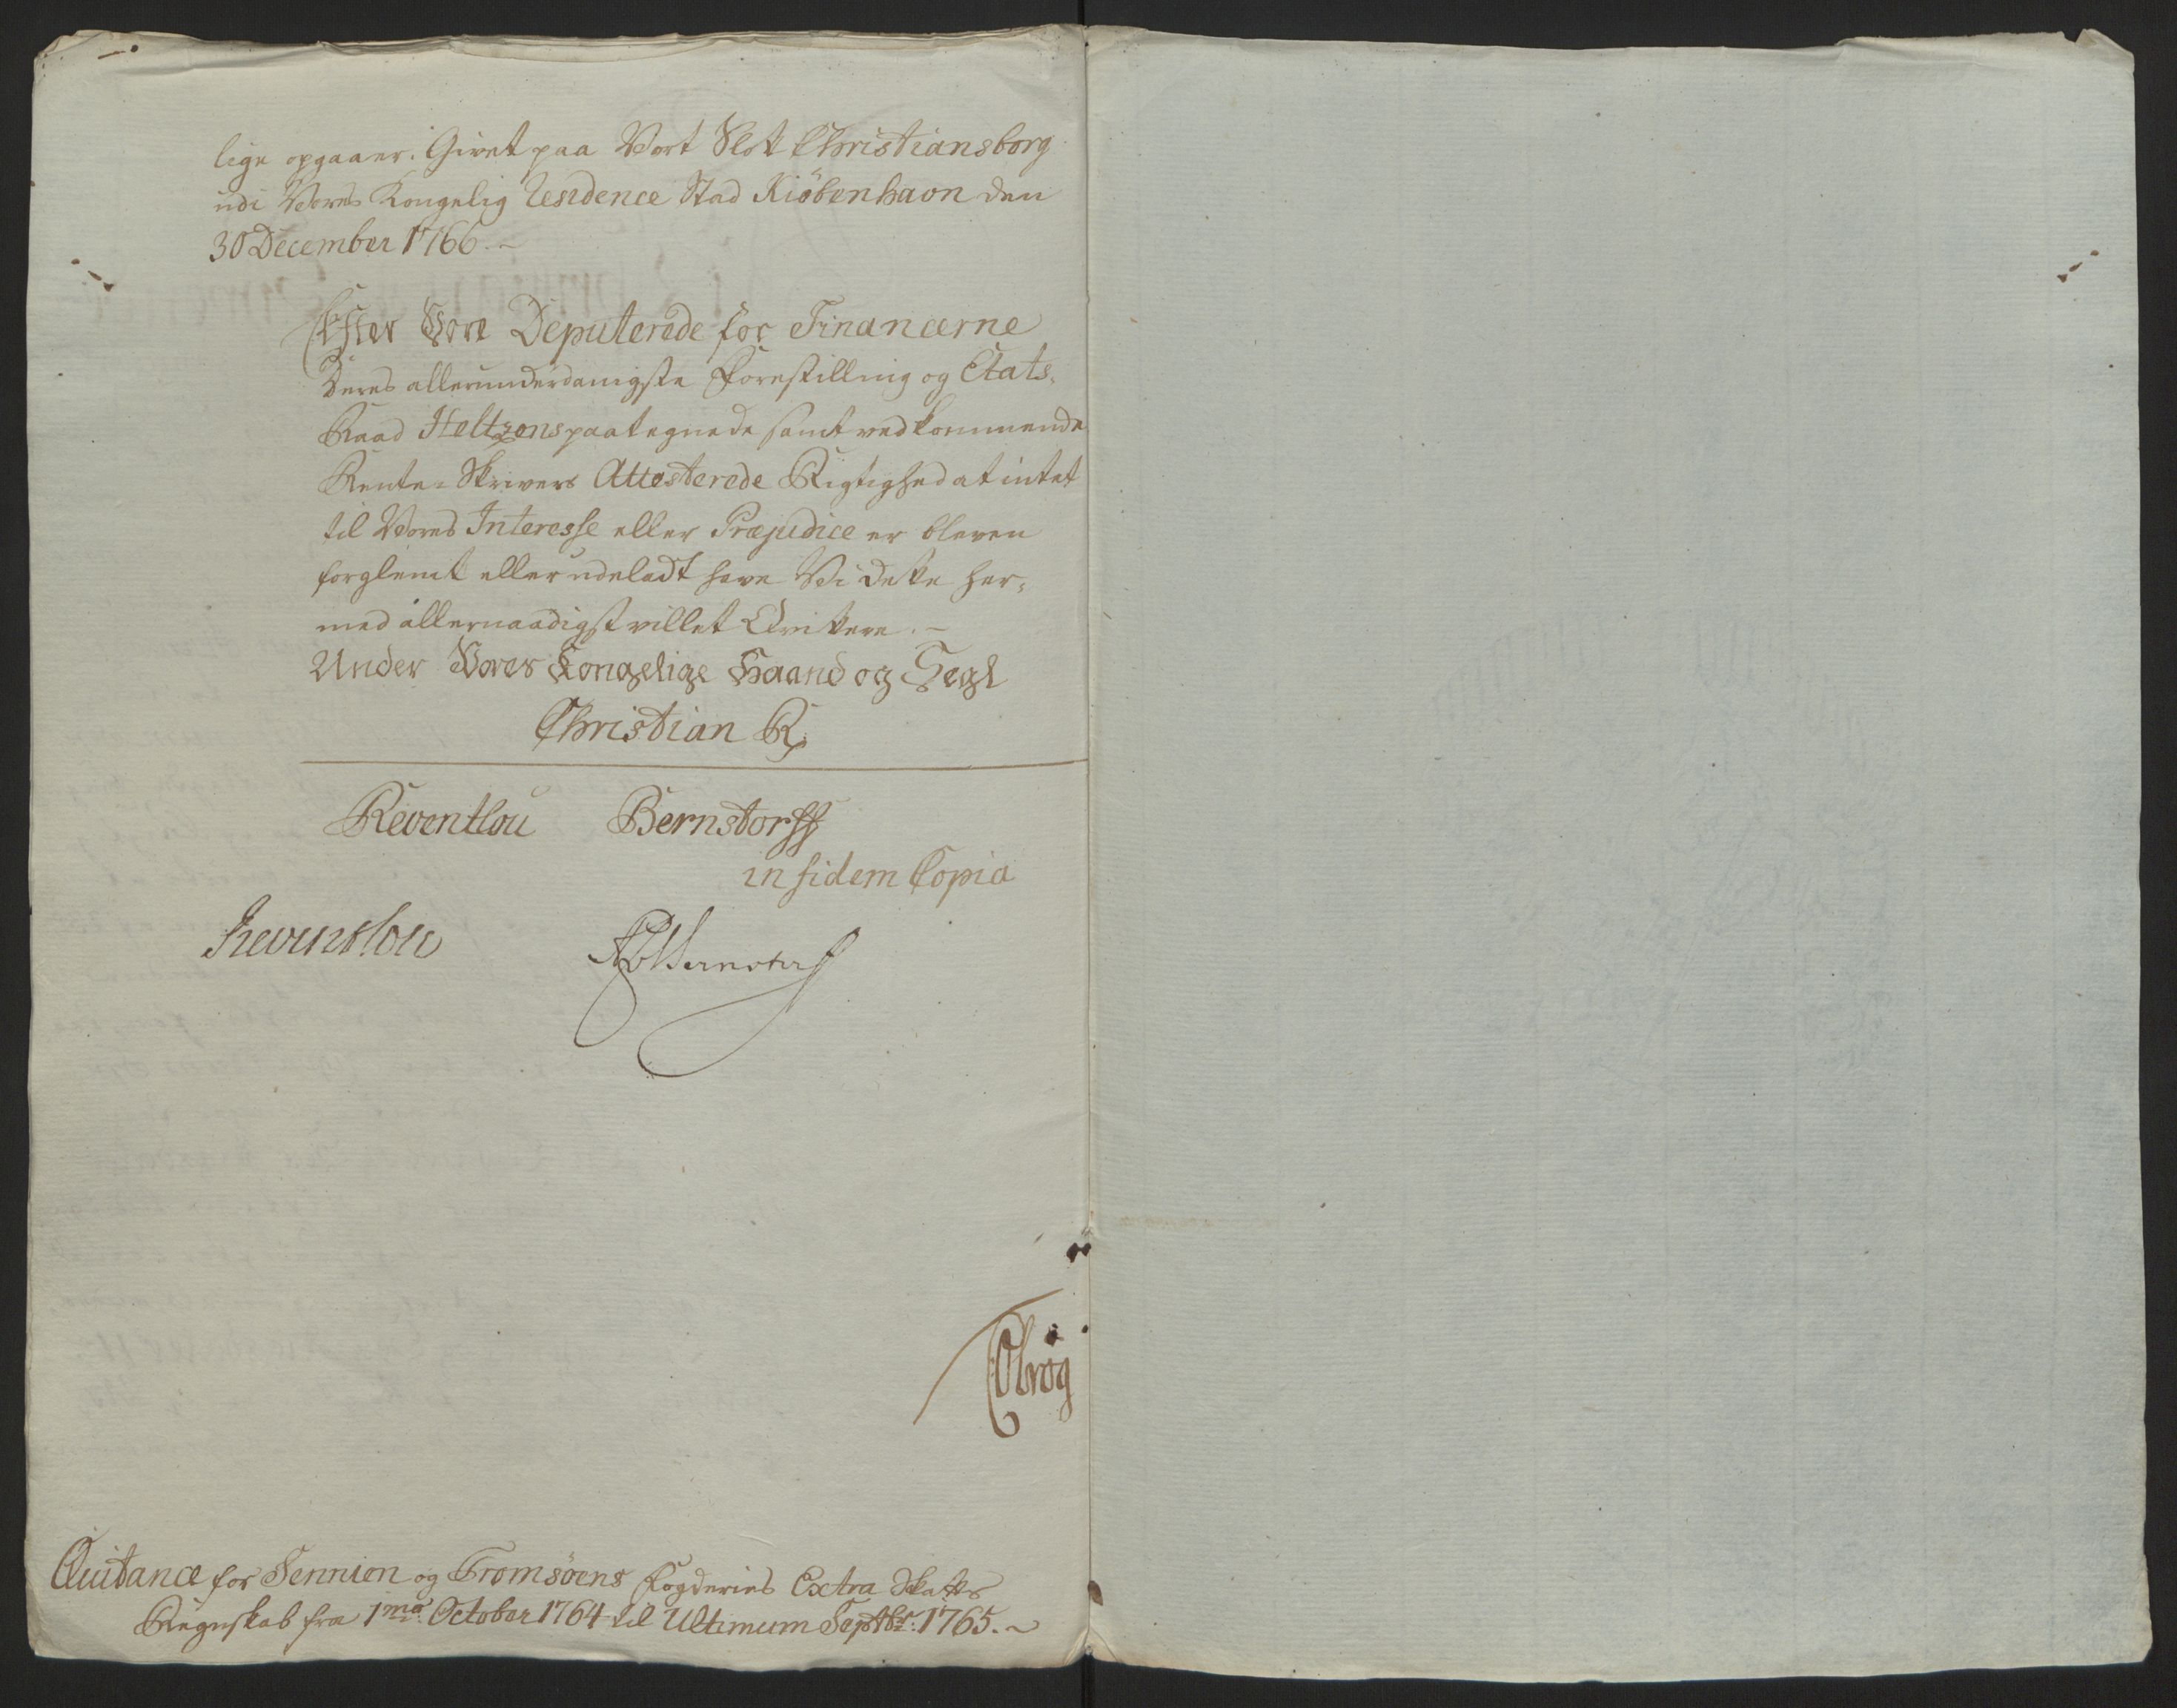 lige opgaaer. Givet paa Vort Slot Christiansborg
udi Vores Kongelig Residence Stad Kiöbenhavn den
30 December 1766.
Efter Vore Deputerede for Financerne
Deres allerunderdanigste Forestilling og Etats-
Raad Heltzens paategnede samt vedkommende
Rente-Skrivers Attesterede Rigtighed at intet
til Vores Interesse eller Præjudice er bleven
forglemt eller udeladt have Vi dette her-
med allernaadigst villet Qvittere.
Under Vores Kongelige Haand og Segl
Christian R.
Reventlou Bernstorff
in fidem Copia
Reventlou Bernstorff
Quitance for Sennien og Tromsöens Fogderies Extra Skatts
Regnskab fra 1ma October 1764 til Ultimum Septbr: 1765.